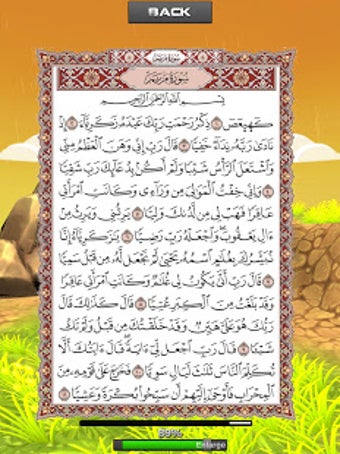 BACK
سُورَةُ مَرْيَمَ
سُورَةُ مَرْيَمَ
بِسْمِ ٱللَّهِ ٱلرَّحْمَٰنِ ٱلرَّحِيمِ
كٓهيعٓصٓ ١ ذِكْرُ رَحْمَتِ رَبِّكَ عَبْدَهُۥ زَكَرِيَّآ ٢ إِذْ
نَادَىٰ رَبَّهُۥ نِدَآءً خَفِيًّا ٣ قَالَ رَبِّ إِنِّي وَهَنَ ٱلْعَظْمُ مِنِّي
وَٱشْتَعَلَ ٱلرَّأْسُ شَيْبًا وَلَمْ أَكُنۢ بِدُعَآئِكَ رَبِّ شَقِيًّا
٤ وَإِنِّي خِفْتُ ٱلْمَوَٰلِيَ مِن وَرَآءِي وَكَانَتِ ٱمْرَأَتِي
عَاقِرًا فَهَبْ لِي مِن لَّدُنكَ وَلِيًّا ٥ يَرِثُنِي وَيَرِثُ مِنْ
ءَالِ يَعْقُوبَ وَٱجْعَلْهُ رَبِّ رَضِيًّا ٦ يَٰزَكَرِيَّآ إِنَّا
نُبَشِّرُكَ بِغُلَٰمٍ ٱسْمُهُۥ يَحْيَىٰ لَمْ نَجْعَل لَّهُۥ مِن قَبْلُ سَمِيًّا
٧ قَالَ رَبِّ أَنَّىٰ يَكُونُ لِي غُلَٰمٌ وَكَانَتِ ٱمْرَأَتِي عَاقِرًا
وَقَدْ بَلَغْتُ مِنَ ٱلْكِبَرِ عِتِيًّا ٨ قَالَ كَذَٰلِكَ قَالَ
رَبُّكَ هُوَ عَلَيَّ هَيِّنٌ وَقَدْ خَلَقْتُكَ مِن قَبْلُ وَلَمْ تَكُ
شَيْئًا ٩ قَالَ رَبِّ ٱجْعَل لِّي ءَايَةً قَالَ ءَايَتُكَ أَلَّا
تُكَلِّمَ ٱلنَّاسَ ثَلَٰثَ لَيَالٍ سَوِيًّا ١٠ فَخَرَجَ عَلَىٰ قَوْمِهِۦ مِنَ
ٱلْمِحْرَابِ فَأَوْحَىٰٓ إِلَيْهِمْ أَن سَبِّحُوا۟ بُكْرَةً وَعَشِيًّا ١١
99%
Enlarge